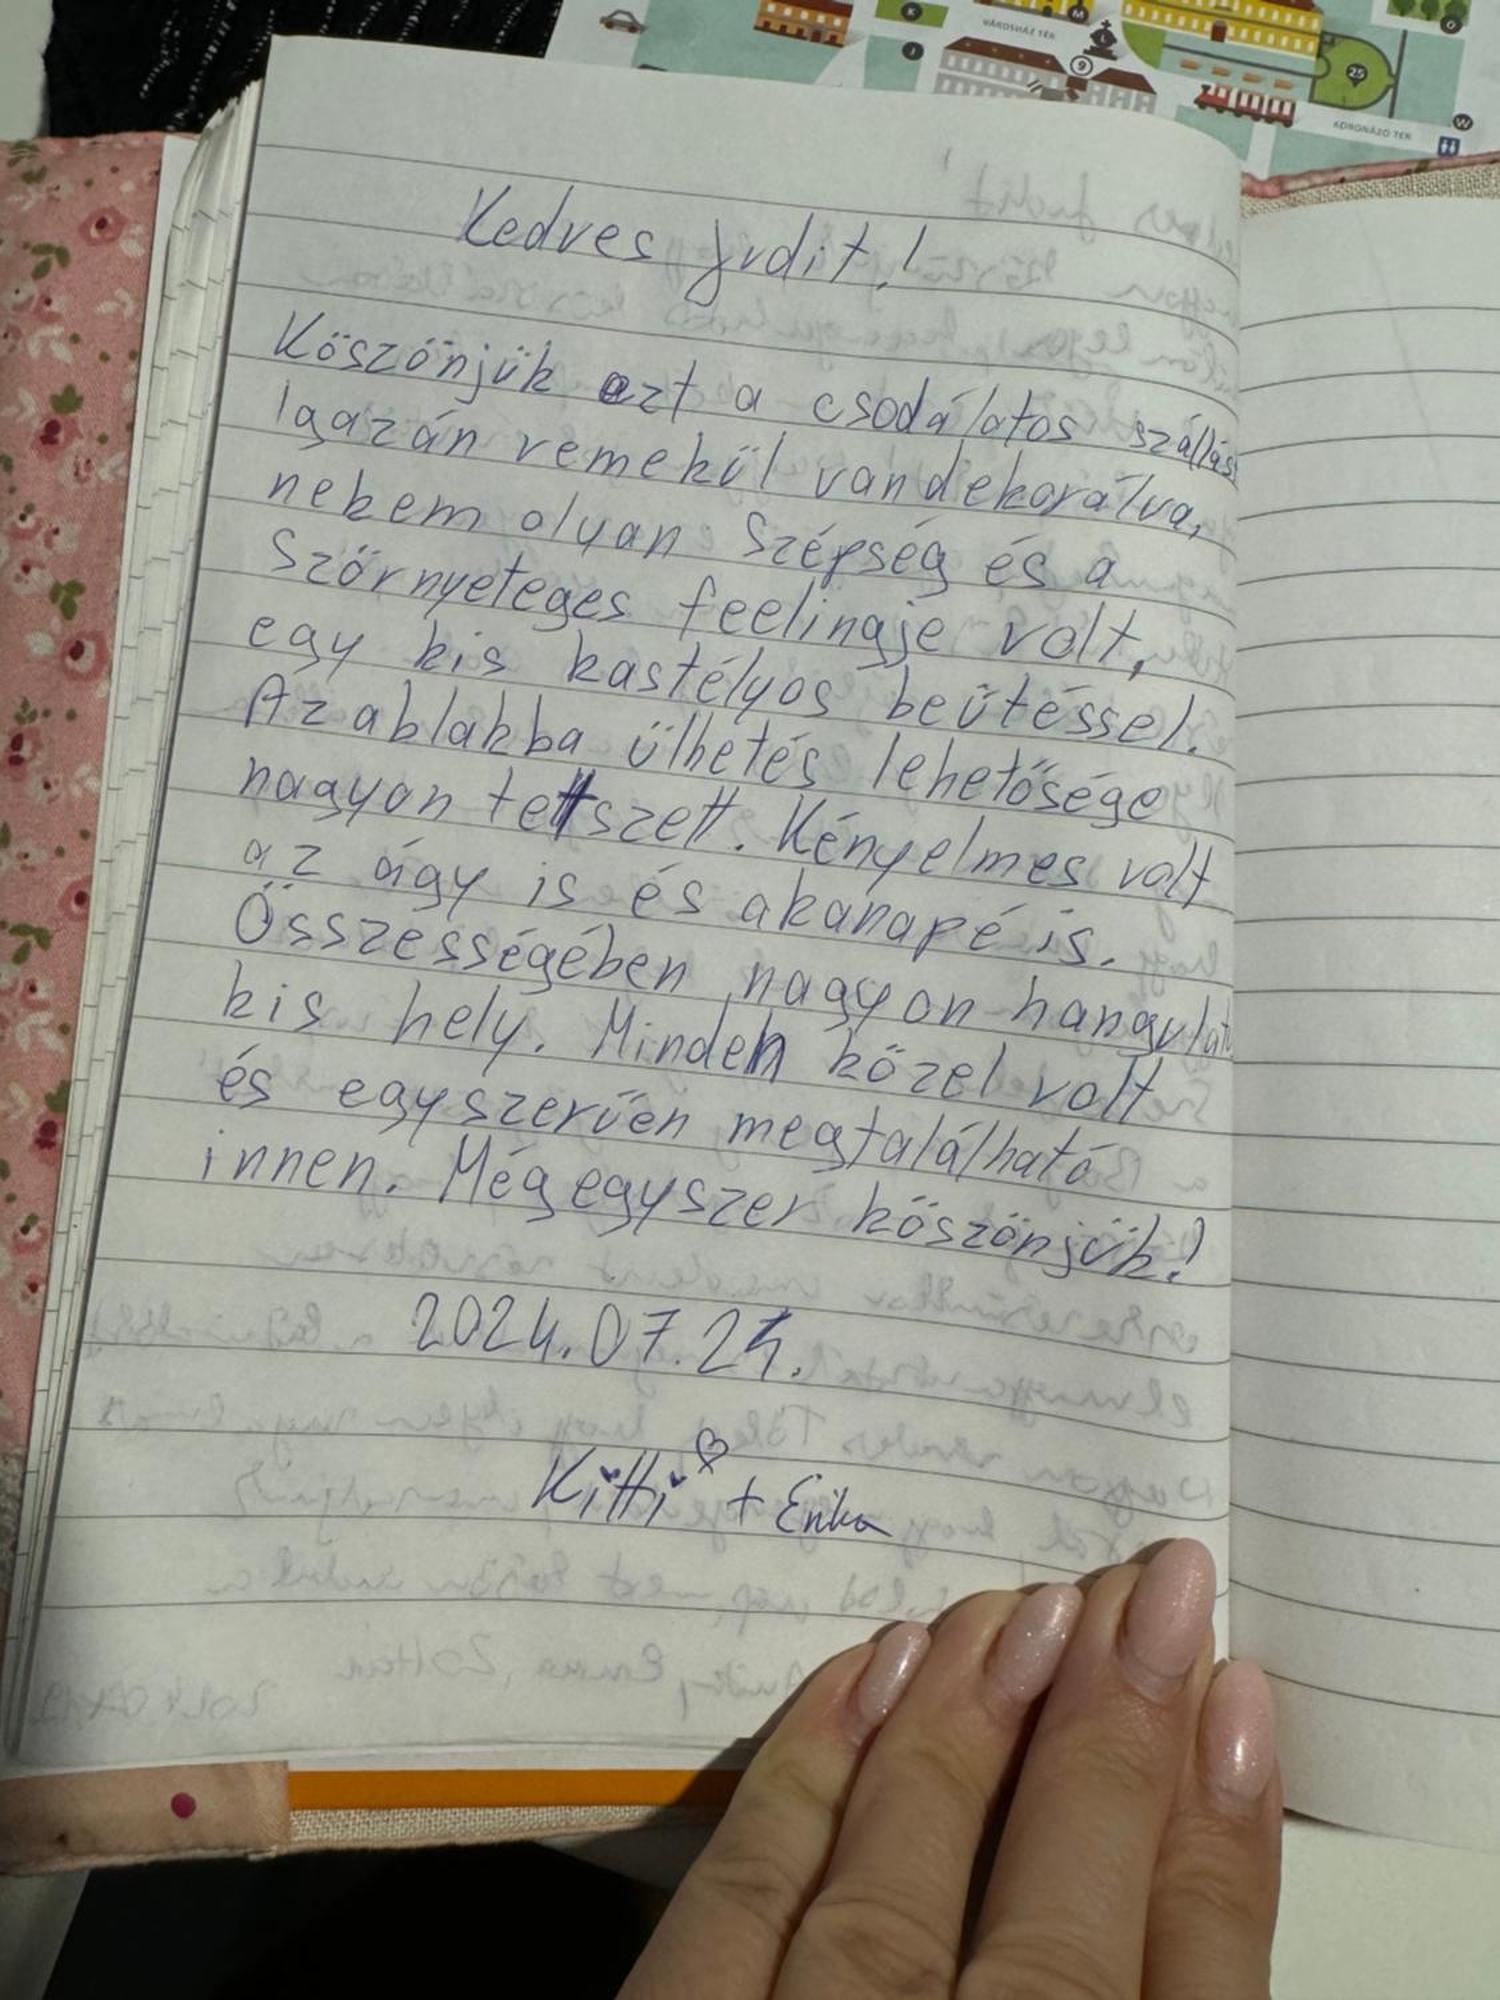 VÁROSHÁZ TÉR
K
M
J
L
9
25
O
W
KORONÁZÓ TÉR
Kedves Judit!
Köszönjük ezt a csodálatos szállást
Igazán remekül van dekorálva,
nekem olyan Szépség és a
Szörnyeteges feelingje volt,
egy kis kastélyos beütéssel.
Az ablakba ülhetés lehetősége
nagyon tettszett. Kényelmes volt
az ágy is és a kanapé is.
Összességében nagyon hangulat
kis hely. Minden közel volt
és egyszerűen megtalálható
innen. Még egyszer köszönjük!
2024.07.
Kitti + Erika